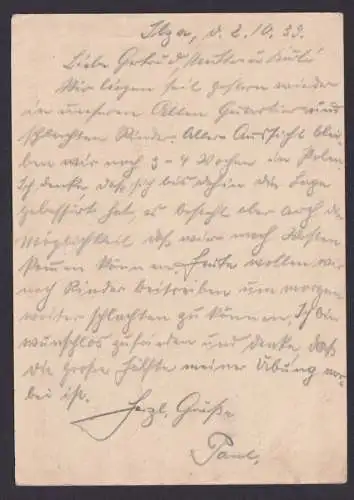 Ilza, d. 2.10.39.
Liebe Gertrud, Mutter u. Kuli!
Wir liegen seit gestern wieder
in unseren Alten Quartier und
schlachten Rinder. Aller Aussicht blei-
ben wir noch 3-4 Wochen in Polen.
Ich denke, daß sich bis dahin die Lage
gebessert hat, es besteht aber auch die
Möglichkeit daß wir nach Westen
kommen können. Heute wollen wir
noch Rinder beitreiben um morgen
weiter schlachten zu können. Ich bin
wunschlos zufrieden und denke, daß
die große Hälfte meiner Übung vor-
bei ist.
Herzl. Grüße
Paul.